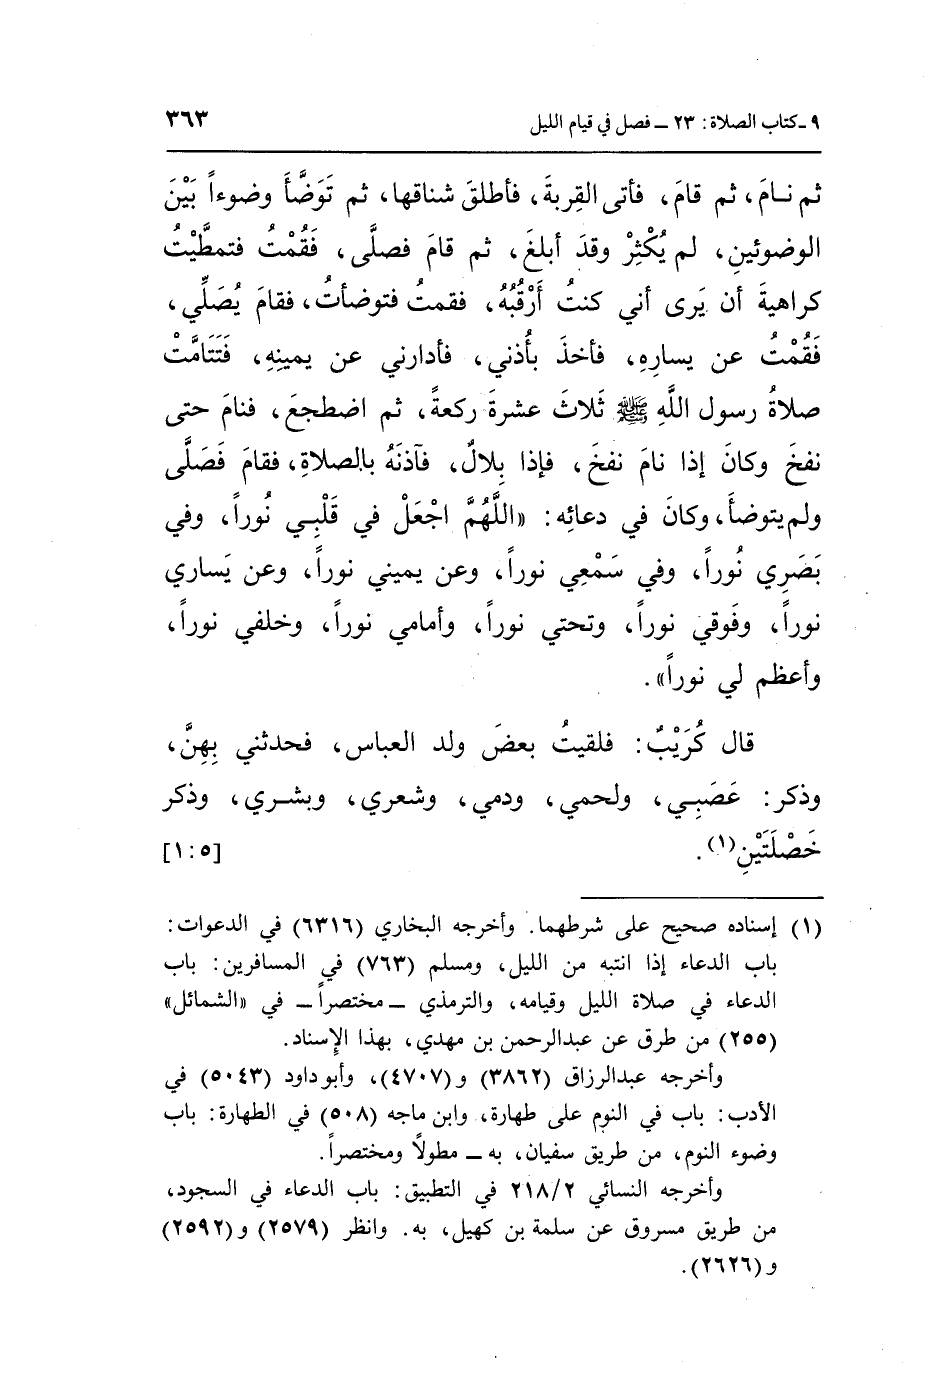 ٩ ـ كتاب الصلاة: ٢٣ ـ فصل في قيام الليل ٣٦٣
ثم نـامَ، ثم قامَ، فأتى القِربةَ، فأطلقَ شناقها، ثم تَوَضَّأَ وضوءاً بَيْنَ
الوضوئينِ، لم يُكْثِرْ وقدَ أبلغَ، ثم قامَ فصلَّى، فَقُمْتُ فتمطَّيْتُ
كراهيةَ أن يَرى أني كنتُ أَرْقُبُهُ، فقمتُ فتوضأتُ، فقامَ يُصَلِّي،
فَقُمْتُ عن يسارِهِ، فأخذَ بأُذني، فأدارني عن يمينِهِ، فَتَتَامَّتْ
صلاةُ رسول اللَّهِ ﷺ ثَلاثَ عشرةَ ركعةً، ثم اضطجعَ، فنامَ حتى
نفخَ وكانَ إذا نامَ نفخَ، فإذا بِلالٌ، فآذنَهُ بالصلاةِ، فقامَ فَصَلَّى
ولم يتوضأَ، وكانَ في دعائِه: «اللَّهُمَّ اجْعَلْ في قَلْبِـي نُوراً، وفي
بَصَرِي نُوراً، وفي سَمْعِي نوراً، وعن يميني نوراً، وعن يَساري
نوراً، وفَوقي نوراً، وتحتي نوراً، وأمامي نوراً، وخلفي نوراً،
وأعظم لي نوراً».
قال كُرَيْبٌ: فلقيتُ بعضَ ولد العباس، فحدثني بِهِنَّ،
وذكر: عَصَبِـي، ولحمي، ودمي، وشعري، وبشـري، وذكر
خَصْلَتَيْنِ(١). [٥:١]
(١) إسناده صحيح على شرطهما. وأخرجه البخاري (٦٣١٦) في الدعوات:
باب الدعاء إذا انتبه من الليل، ومسلم (٧٦٣) في المسافرين: باب
الدعاء في صلاة الليل وقيامه، والترمذي ـ مختصراً ـ في «الشمائل»
(٢٥٥) من طرق عن عبدالرحمن بن مهدي، بهذا الإسناد.
وأخرجه عبدالرزاق (٣٨٦٢) و(٤٧٠٧)، وأبو داود (٥٠٤٣) في
الأدب: باب في النوم على طهارة، وابن ماجه (٥٠٨) في الطهارة: باب
وضوء النوم، من طريق سفيان، به ـ مطولاً ومختصراً.
وأخرجه النسائي ٢١٨/٢ في التطبيق: باب الدعاء في السجود،
من طريق مسروق عن سلمة بن كهيل، به. وانظر (٢٥٧٩) و(٢٥٩٢)
و(٢٦٢٦).